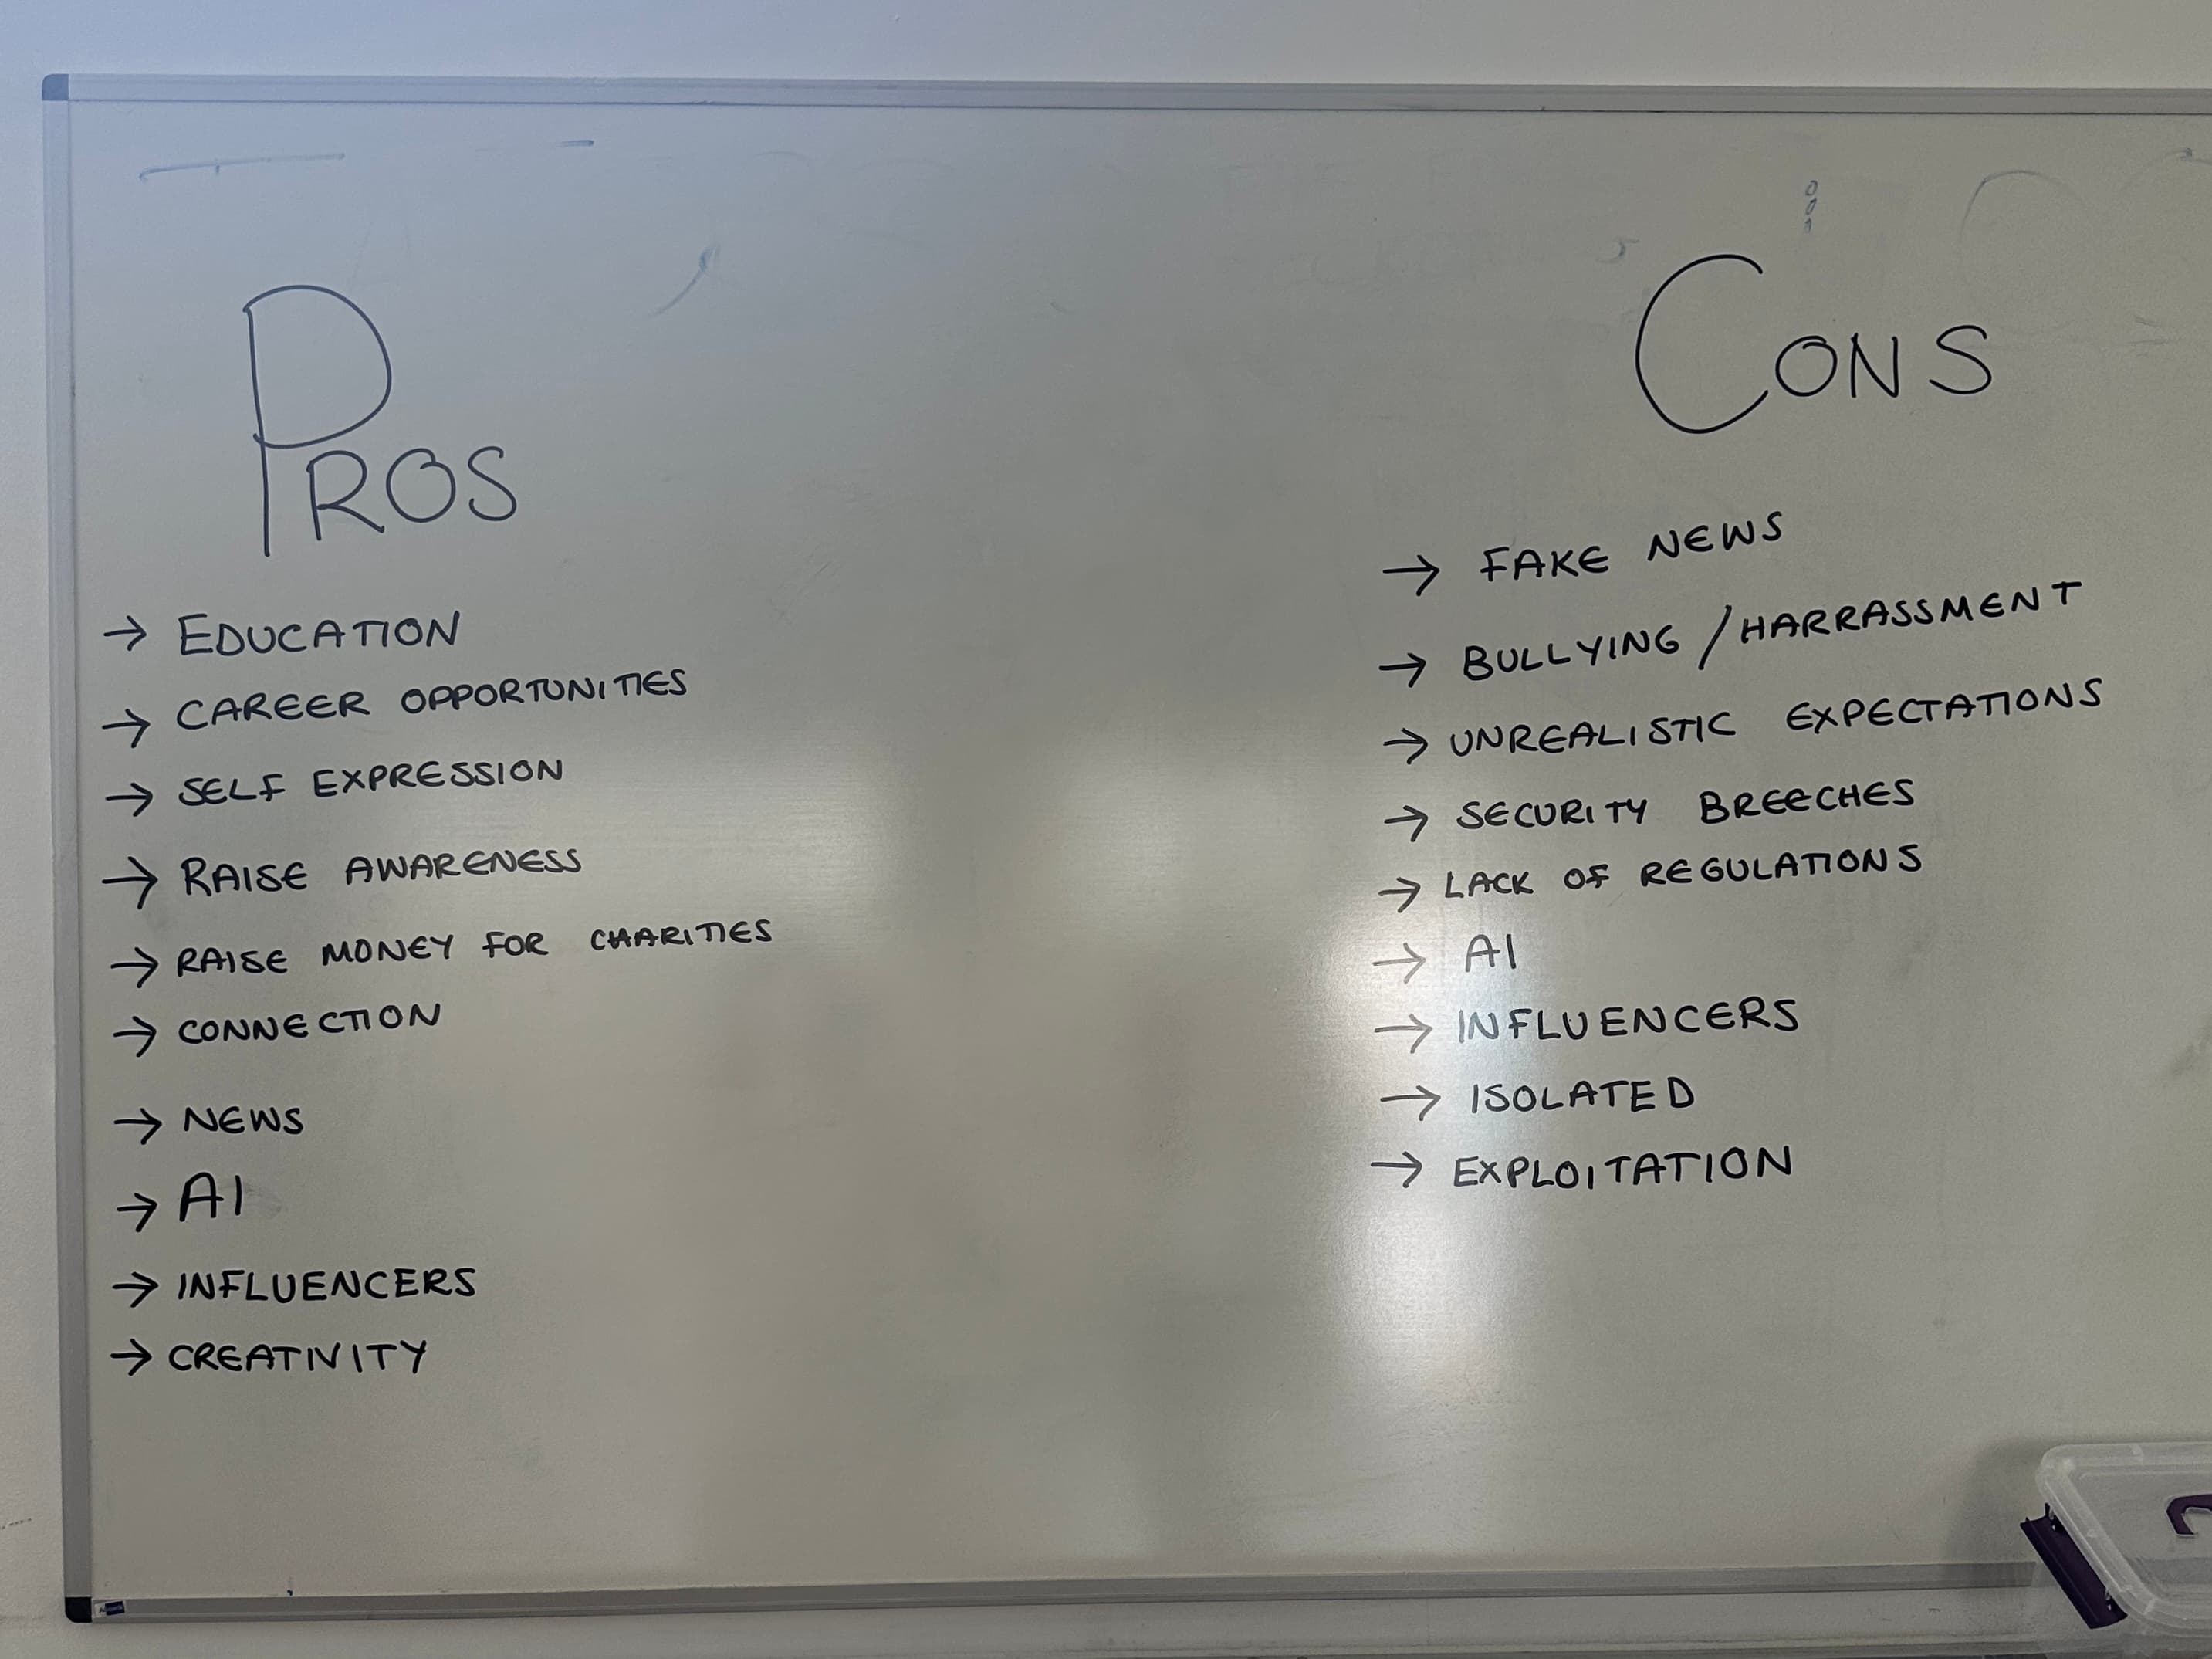 PROS
→ EDUCATION
→ CAREER OPPORTUNITIES
→ SELF EXPRESSION
→ RAISE AWARENESS
→ RAISE MONEY FOR CHARITIES
→ CONNECTION
→ NEWS
→ AI
→ INFLUENCERS
→ CREATIVITY
CONS
→ FAKE NEWS
→ BULLYING / HARRASSMENT
→ UNREALISTIC EXPECTATIONS
→ SECURITY BREECHES
→ LACK OF REGULATIONS
→ AI
→ INFLUENCERS
→ ISOLATED
→ EXPLOITATION